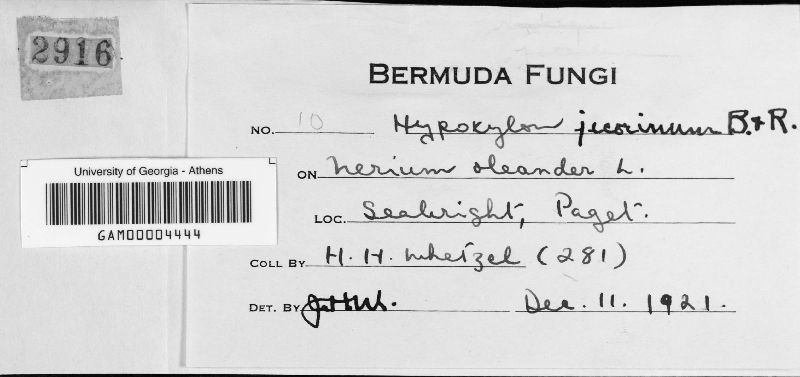 2916
BERMUDA FUNGI
NO. 10 Hypoxylon jecorinum B. & R.
ON Nerium oleander L.
LOC. Seabright, Paget.
University of Georgia - Athens
GAM00004444
COLL BY H. H. Whetzel (281)
DET. BY Dec. 11. 1921.